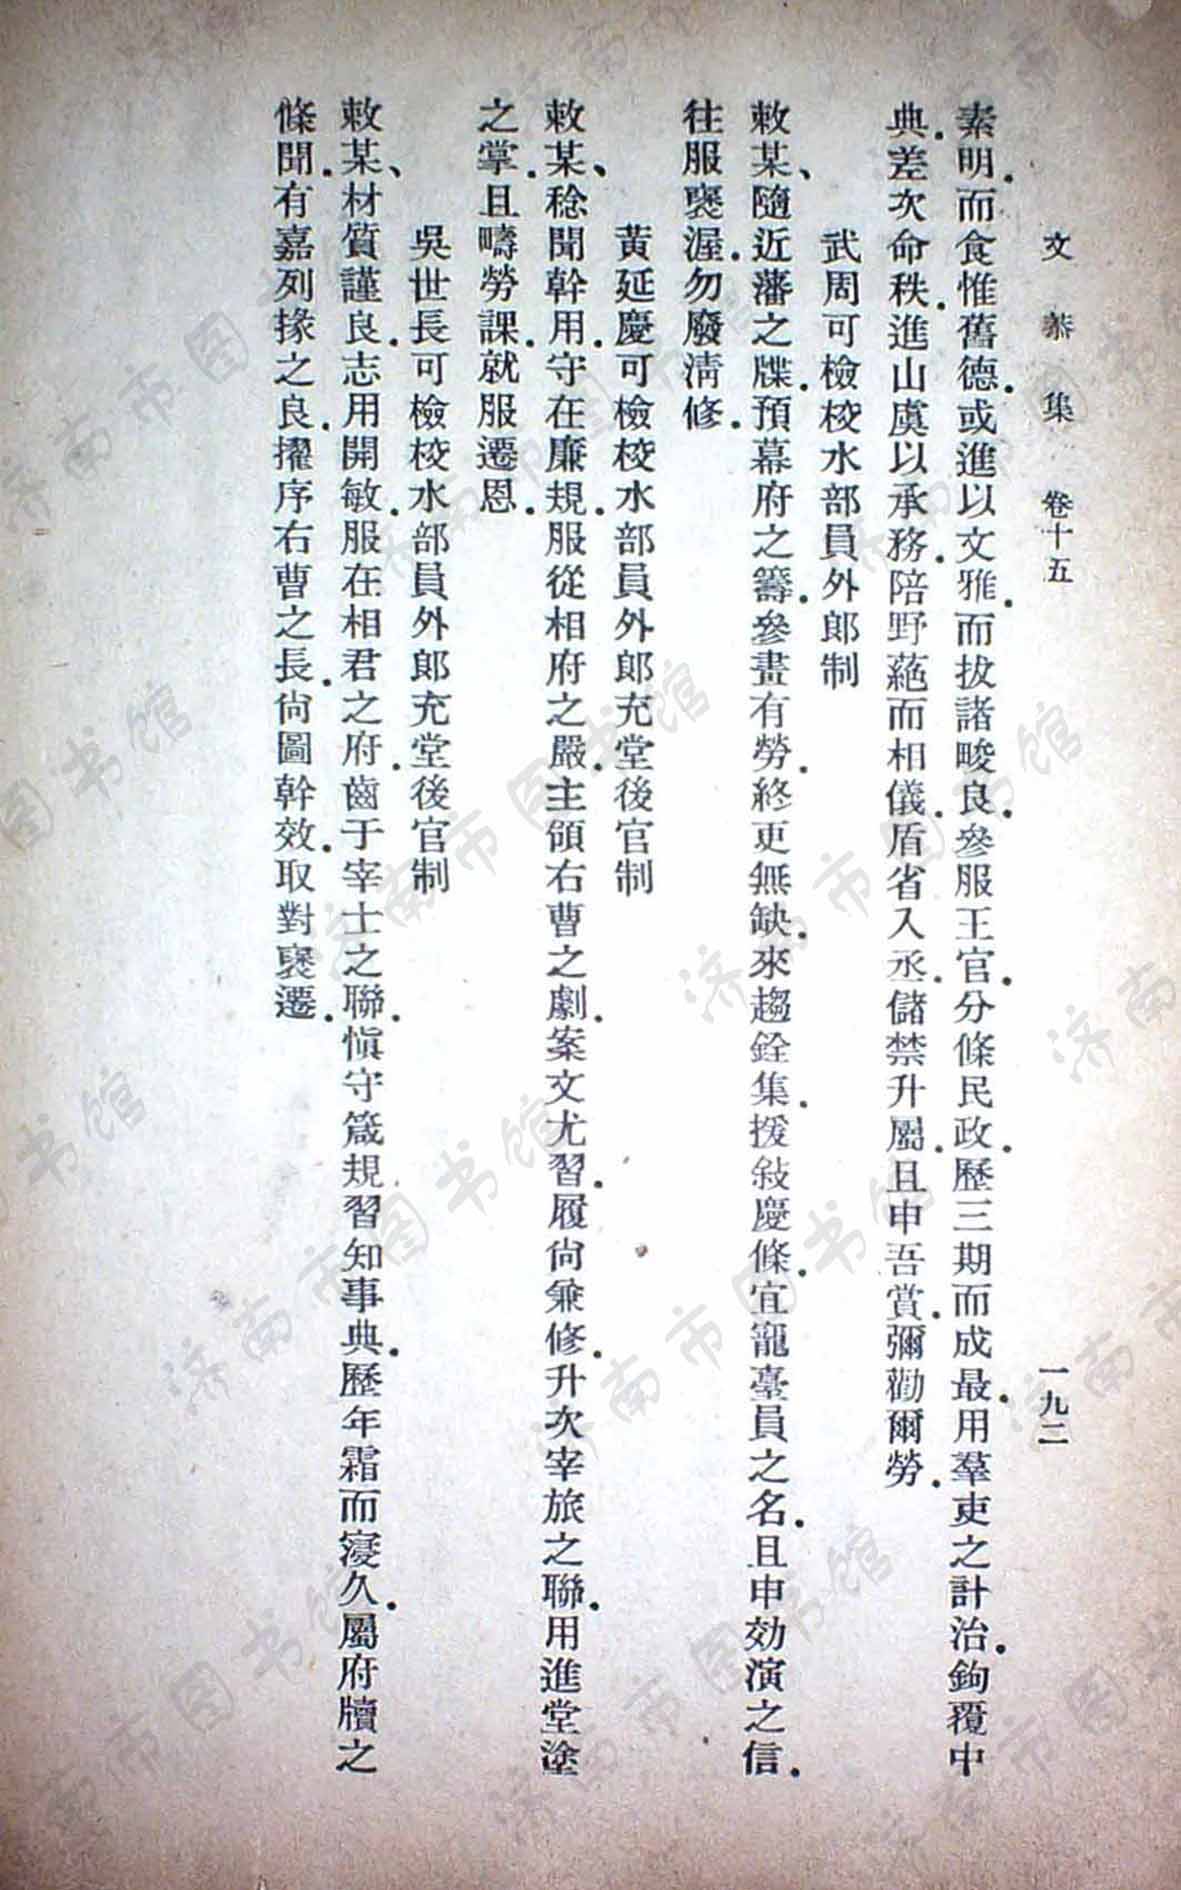 文恭集 卷十五 一九二
素明.而食惟舊德.或進以文雅.而拔諸畯良.參服王官.分條民政.歷三期而成最.用羣吏之計治.鉤覆中
典.差次命秩.進山虞以承務.陪野蕝而相儀.盾省入丞.儲禁升屬.且申吾賞.彌勸爾勞.
武周可檢校水部員外郎制
敕某、隨近藩之牒.預幕府之籌.參畫有勞.終更無缺.來趨銓集.援敍慶條.宜寵臺員之名.且申効演之信.
往服褒渥.勿廢淸修.
黃延慶可檢校水部員外郎充堂後官制
敕某、稔聞幹用.守在廉規.服從相府之嚴.主領右曹之劇.案文尤習.履尙兼修.升次宰旅之聯.用進堂塗
之掌.且疇勞課.就服遷恩.
吳世長可檢校水部員外郎充堂後官制
敕某、材質謹良.志用開敏.服在相君之府.齒于宰士之聯.愼守箴規.習知事典.歷年霜而寖久.屬府牘之
條聞.有嘉列掾之良.擢序右曹之長.尙圖幹效.取對褒遷.
济南市图书馆